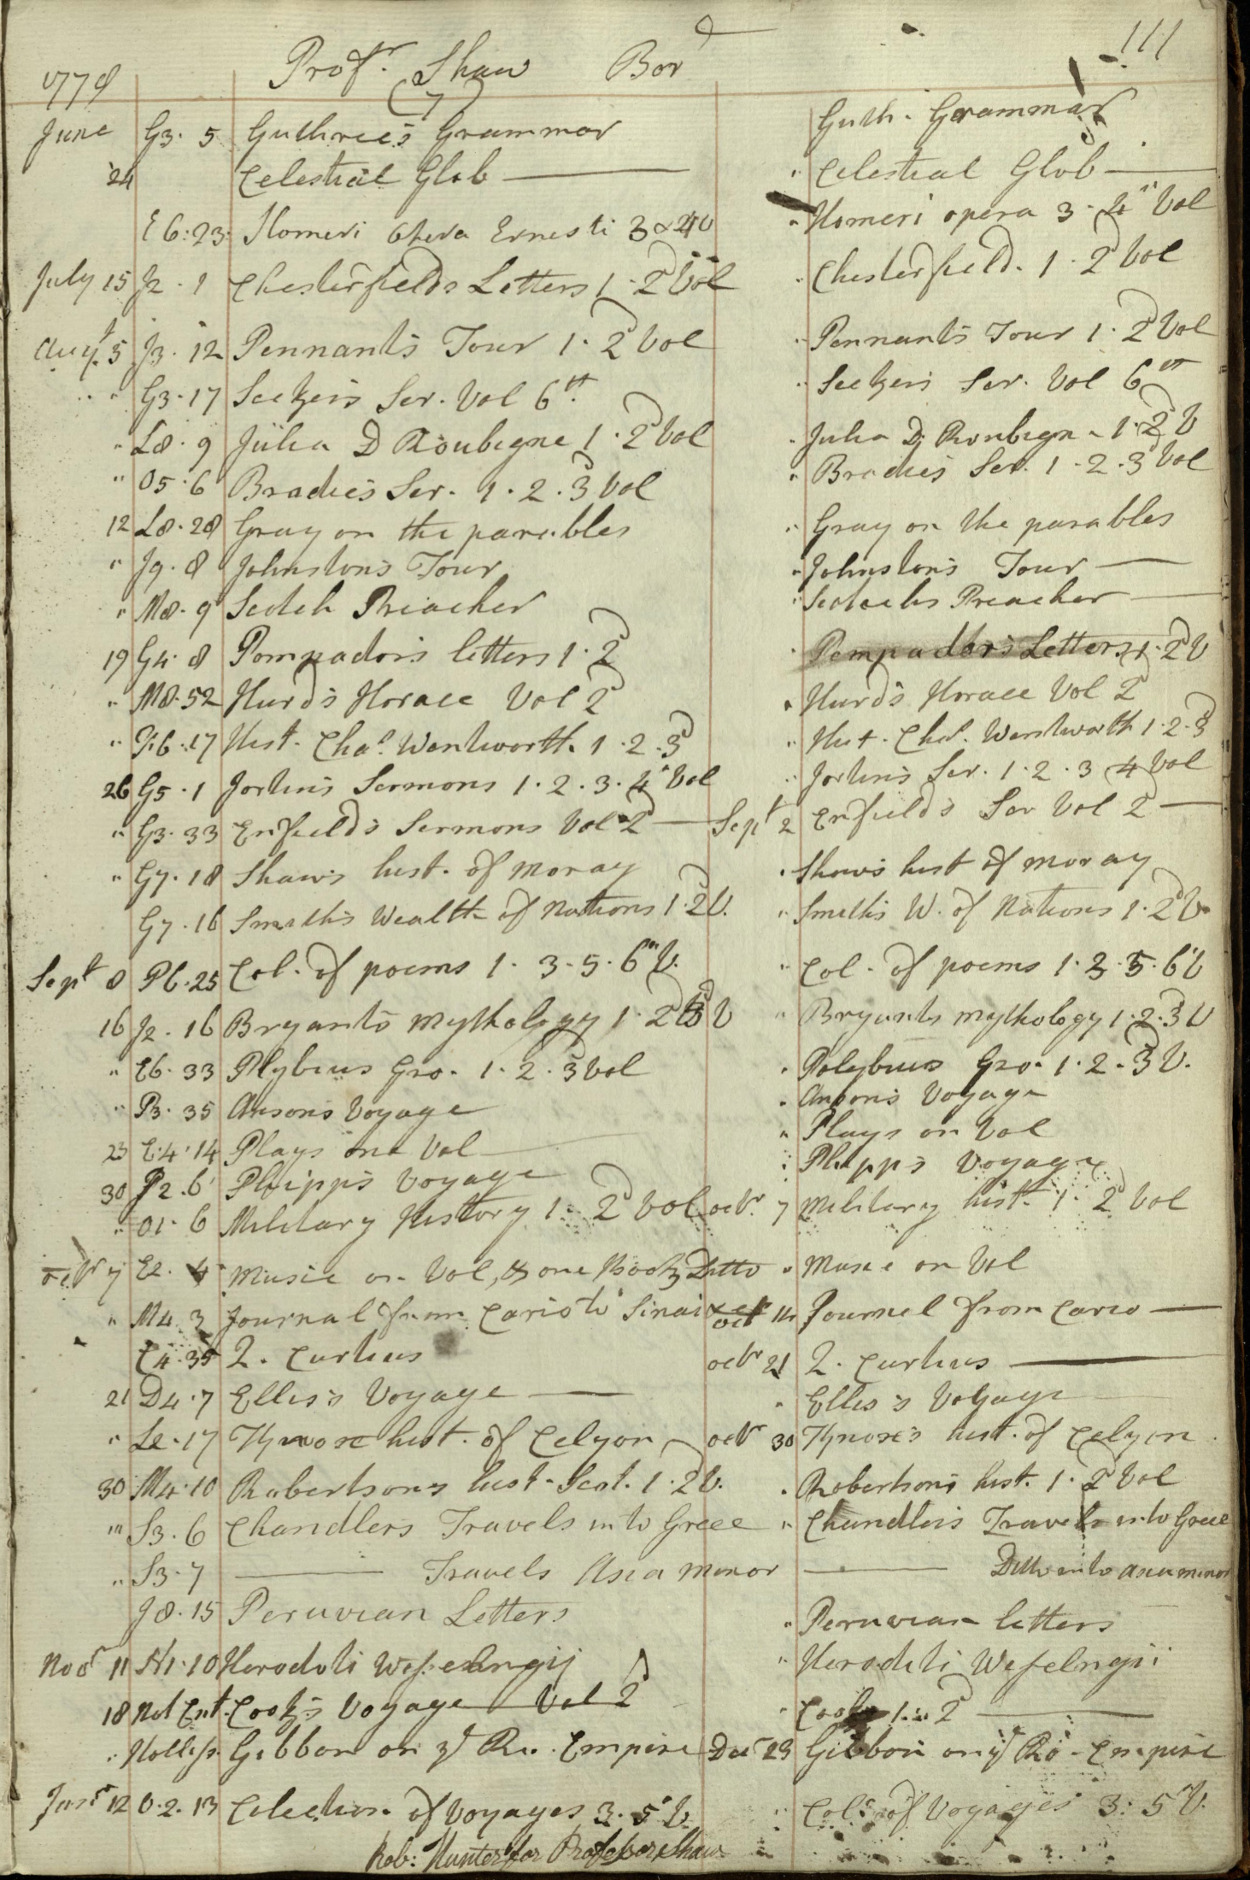 111
1778 Profr. Shaw Bor
June G3. 5 Guthree's Grammar Guth. Grammar
24 Celestial Glob " Celestial Glob
E6:23. Homeri Opera Ernesti 3 & 4 V " Homeri opera 3. 4" Vol
July 15 J2. 1 Chesterfields Letters 1. 2 Vol " Chesterfield. 1. 2 Vol
Augt. 5 J3. 12 Pennants Tour 1. 2 Vol " Pennants Tour 1. 2 Vol
" G3. 17 Seckers Ser. Vol 6th. " Seckers Ser. Vol 6th
" L8. 9 Julia D Roubigne 1. 2 Vol " Julia D; Roubign - 1. 2 V
" O5. 6 Bradies Ser. 1. 2. 3 Vol " Bradies Ser. 1. 2. 3 Vol
12 L8. 28 Gray on the parables " Gray on the parables
" J9. 8 Johnston's Tour " Johnstons Tour
" M8. 9 Scotch Preacher " Scotchs Preacher
19 G4. 8 Pompadors letters 1. 2 " Pompadors Letters 1. 2 V
" M8. 52 Hurd's Horace Vol 2 " Hurd's Horace Vol 2
" 17 Hist. Chas. Wentworth. 1. 2. 3 " Hist. Chas. Wentworth 1. 2. 3
26 G5. 1 Jortins Sermons 1. 2. 3. 4 Vol " Jortins Ser. 1. 2. 3 4 Vol
" G3. 33 Enfield's Sermons Vol 2 Sept 2 Enfield's Ser Vol 2
" G7. 18 Shaws hist. of Moray " Shaws hist of Moray
G7. 16 Smiths Wealth of Nations 1. 2 V. " Smiths W. of Nations 1. 2 V
Sept 8 P6. 25 Col. of poems 1. 3. 5. 6 V. " Col. of poems 1. 3. 5. 6 V
16 J2. 16 Bryants Mythology 1. 2 3 V " Bryants mythology 1. 2. 3 V
" E6. 33 Plybius Gro. 1. 2. 3 Vol " Polybius Gro. 1. 2. 3 V.
" P3. 35 Ansons Voyage " Ansons Voyage
23 C4. 14 Plays one Vol " Plays on Vol
30 P2. 6 Phipps Voyage " Phipps Voyage
" O1. 6 Military History 1. 2 Vol Octr. 7 Military hist. 1. 2 Vol
Octr 7 E2. 4 Music on Vol, & one Book Ditto " Music on Vol
" M4. 3 Journal from Cario to Sinai Oct 14 Journel from Cario
C4. 35 Q. Curtius Octr 21 Q. Curtius
21 D4. 7 Ellis's Voyage " Ellis's Voyage
" 17 Knox hist. of Celyon Octr 30 Knox's hist. of Celyon
30 M4. 10 Robertsons hist. Scot. 1. 2 V. " Robertsons hist. 1. 2 Vol
" S3. 6 Chandlers Travels into Greec " Chandlers Travels into Greece
" S3. 7 Travels Asia Minor Ditto into Asia minor
J8. 15 Peruvian Letters " Peruvian letters
Novr 11 10 Herodoti Wesselingij " Herodoti Wesselngii
18 Not Ent. Cook's Voyage Vol 2 " Cooks 1. 2
" Gibbon on ye Ro. Empire Decr 23 Gibbon on ye Ro. Empire
Janr 12 O. 2. 13 Celection of Voyages 3. 5 V. " Coln of Voyages 3. 5 V.
Rob: Hunter for Professor Shaw